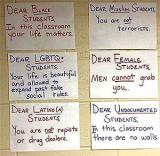 DEAR BLACK
STUDENTS,
In this classroom
your life matters.
DEAR MUSLIM STUDENTS,
You are not
terrorists.
DEAR LGBTQ+
STUDENTS,
Your life is beautiful
and allowed to
expand past fake
social rules
DEAR FEMALE
STUDENTS,
MEN cannot grab
you.
DEAR LATINO(A)
STUDENTS,
You are not rapists or
drug dealers.
DEAR UNDOCUMENTED
STUDENTS,
In this classroom
there are no walls.